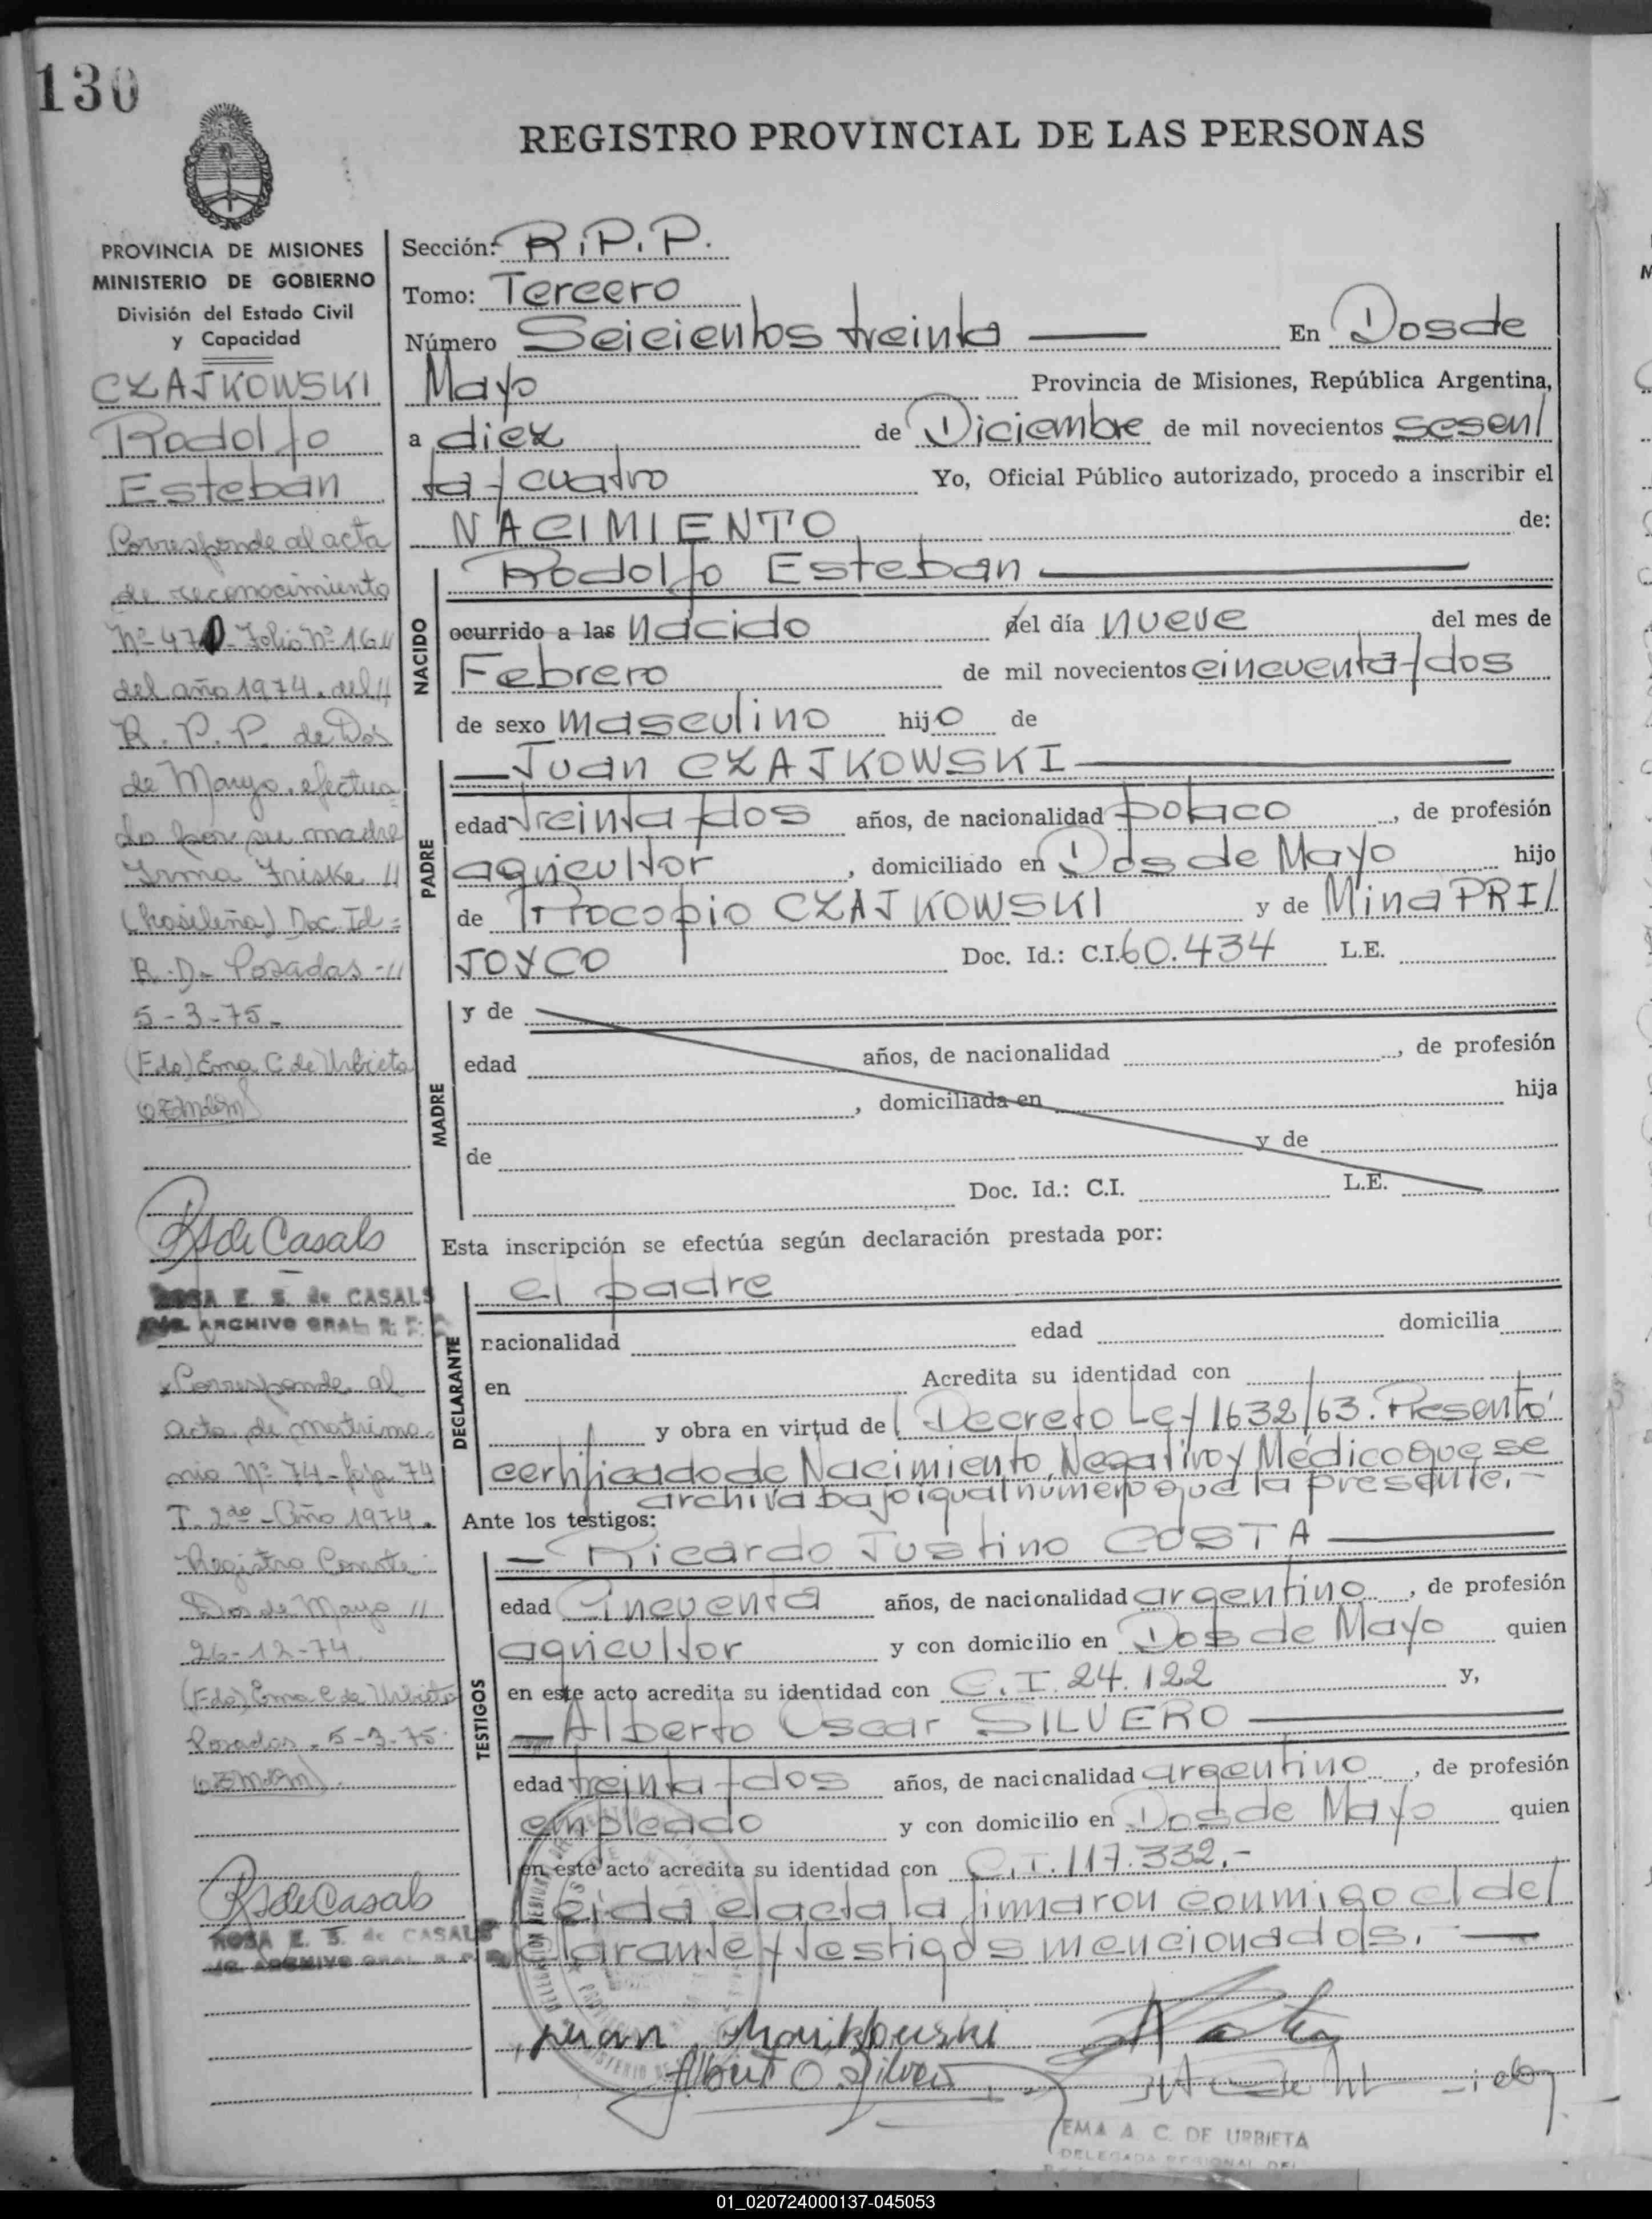 130
REGISTRO PROVINCIAL DE LAS PERSONAS
PROVINCIA DE MISIONES
MINISTERIO DE GOBIERNO
División del Estado Civil
y Capacidad
CZAJKOWSKI
Rodolfo
Esteban
Corresponde al acta
de reconocimiento
Nº 470 - Folio Nº 16 //
del año 1974. del //
R. P. P. de Dos
de Mayo, efectua
do por su madre
Irma Friske //
(brasileña) Doc. Id=
R.D- Posadas -//
5-3-75-
(Fdo) Ema C de Urbieta
RS de Casals
ROSA E. S. de CASALS
ARCHIVO GRAL. R. P.
Corresponde al
acta de matrimo
nio Nº 74 - foja 74
T. 2do - Año 1974.
Registro Conste:
Dos de Mayo //
26-12-74
(Fdo) Ema C de Urbieta
Posadas - 5-3-75.
RS de Casals
ROSA E. S. de CASALS
ARCHIVO GRAL. R. P.
Sección: R.P.P.
Tomo: Tercero
Número Seicientos treinta En Dos de
Mayo Provincia de Misiones, República Argentina,
a diez de Diciembre de mil novecientos sesen/
ta y cuatro Yo, Oficial Público autorizado, procedo a inscribir el
NACIMIENTO de:
NACIDO
Rodolfo Esteban
ocurrido a las nacido del día nueve del mes de
Febrero de mil novecientos cincuenta y dos
de sexo masculino hijo de
PADRE
Juan CZAJKOWSKI
edad treinta y dos años, de nacionalidad polaco, de profesión
agricultor, domiciliado en Dos de Mayo hijo
de Procopio CZAJKOWSKI y de Mina PRI/
JOYCO Doc. Id.: C.I. 60.434 L.E.
MADRE
y de
edad años, de nacionalidad , de profesión
, domiciliada en hija
de y de
Doc. Id.: C.I. L.E.
Esta inscripción se efectúa según declaración prestada por:
DECLARANTE
el padre
nacionalidad edad domicilia
en Acredita su identidad con
y obra en virtud de Decreto Ley 1632/63. Presentó
certificado de Nacimiento, Negativo y Médico que se
archiva bajo igual numero que la presente.-
Ante los testigos:
TESTIGOS
Ricardo Justino COSTA
edad Cincuenta años, de nacionalidad argentino, de profesión
agricultor y con domicilio en Dos de Mayo quien
en este acto acredita su identidad con C.I. 24.122 y,
Alberto Oscar SILVERO
edad treinta y dos años, de nacionalidad argentino, de profesión
empleado y con domicilio en Dos de Mayo quien
en este acto acredita su identidad con C.I. 117.332.-
Leida el acta la firmaron conmigo el de/
clarante y testigos mencionados.
Alberto O Silvero
EMA A. C. DE URBIETA
DELEGADA REGIONAL DEL
01_020724000137-045053